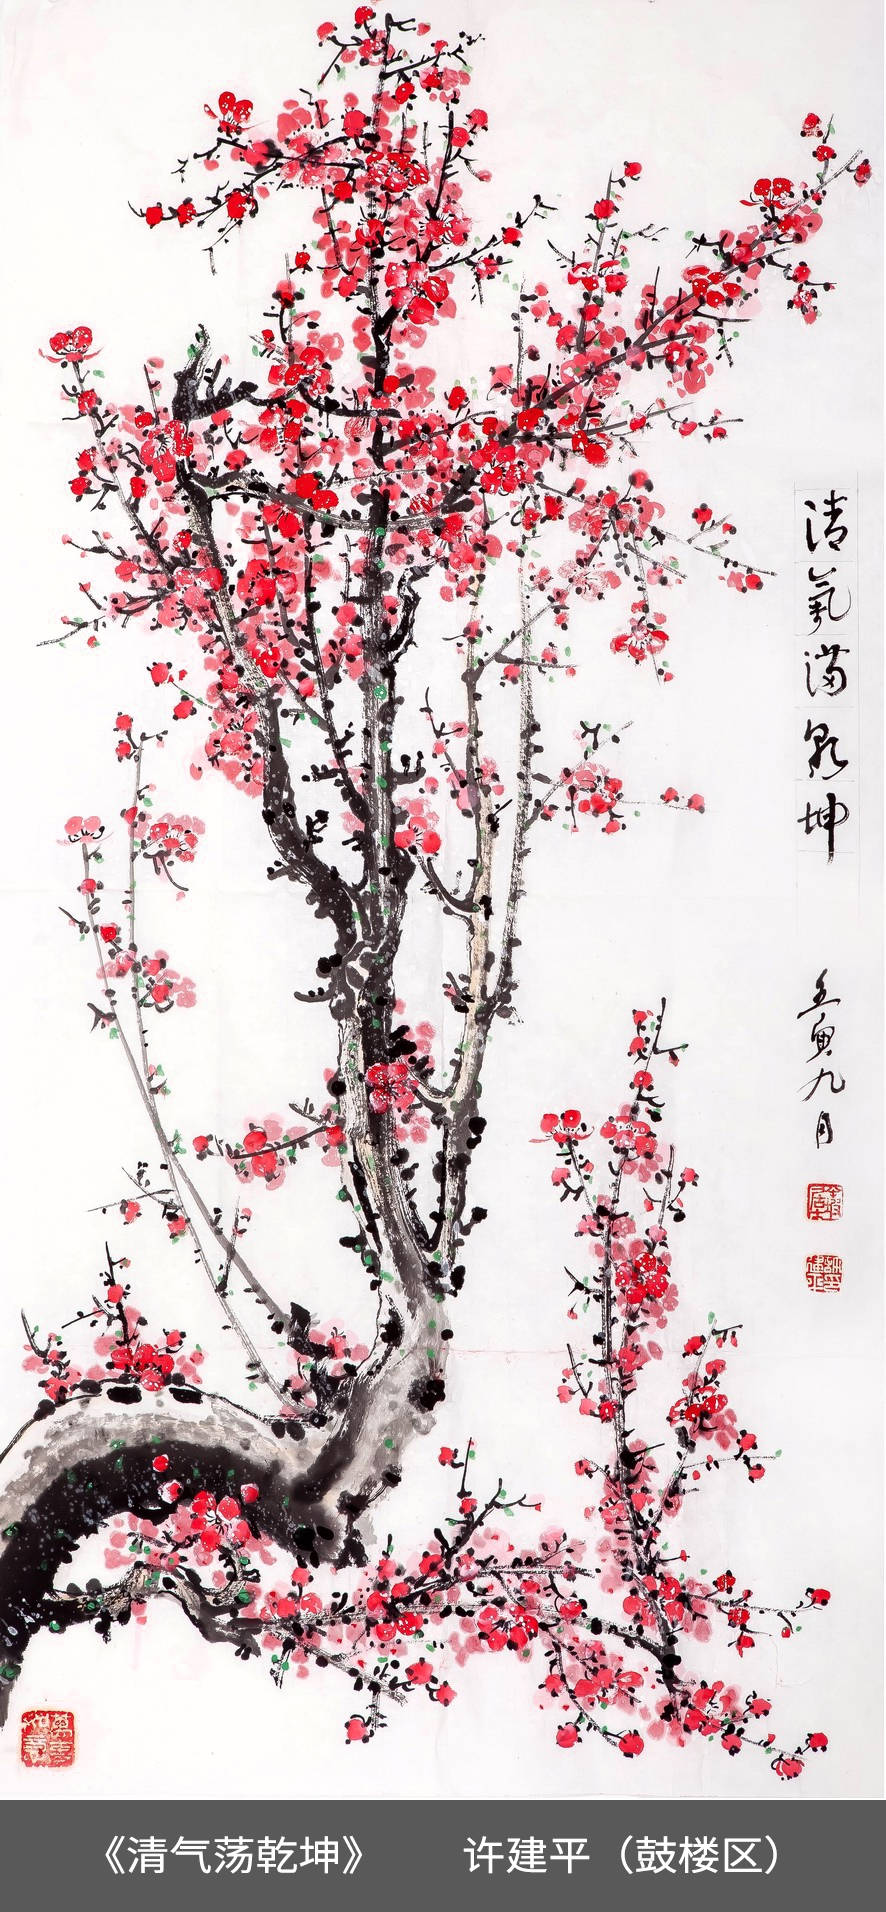 清氣滿乾坤
壬寅九月
《清气荡乾坤》 许建平（鼓楼区）